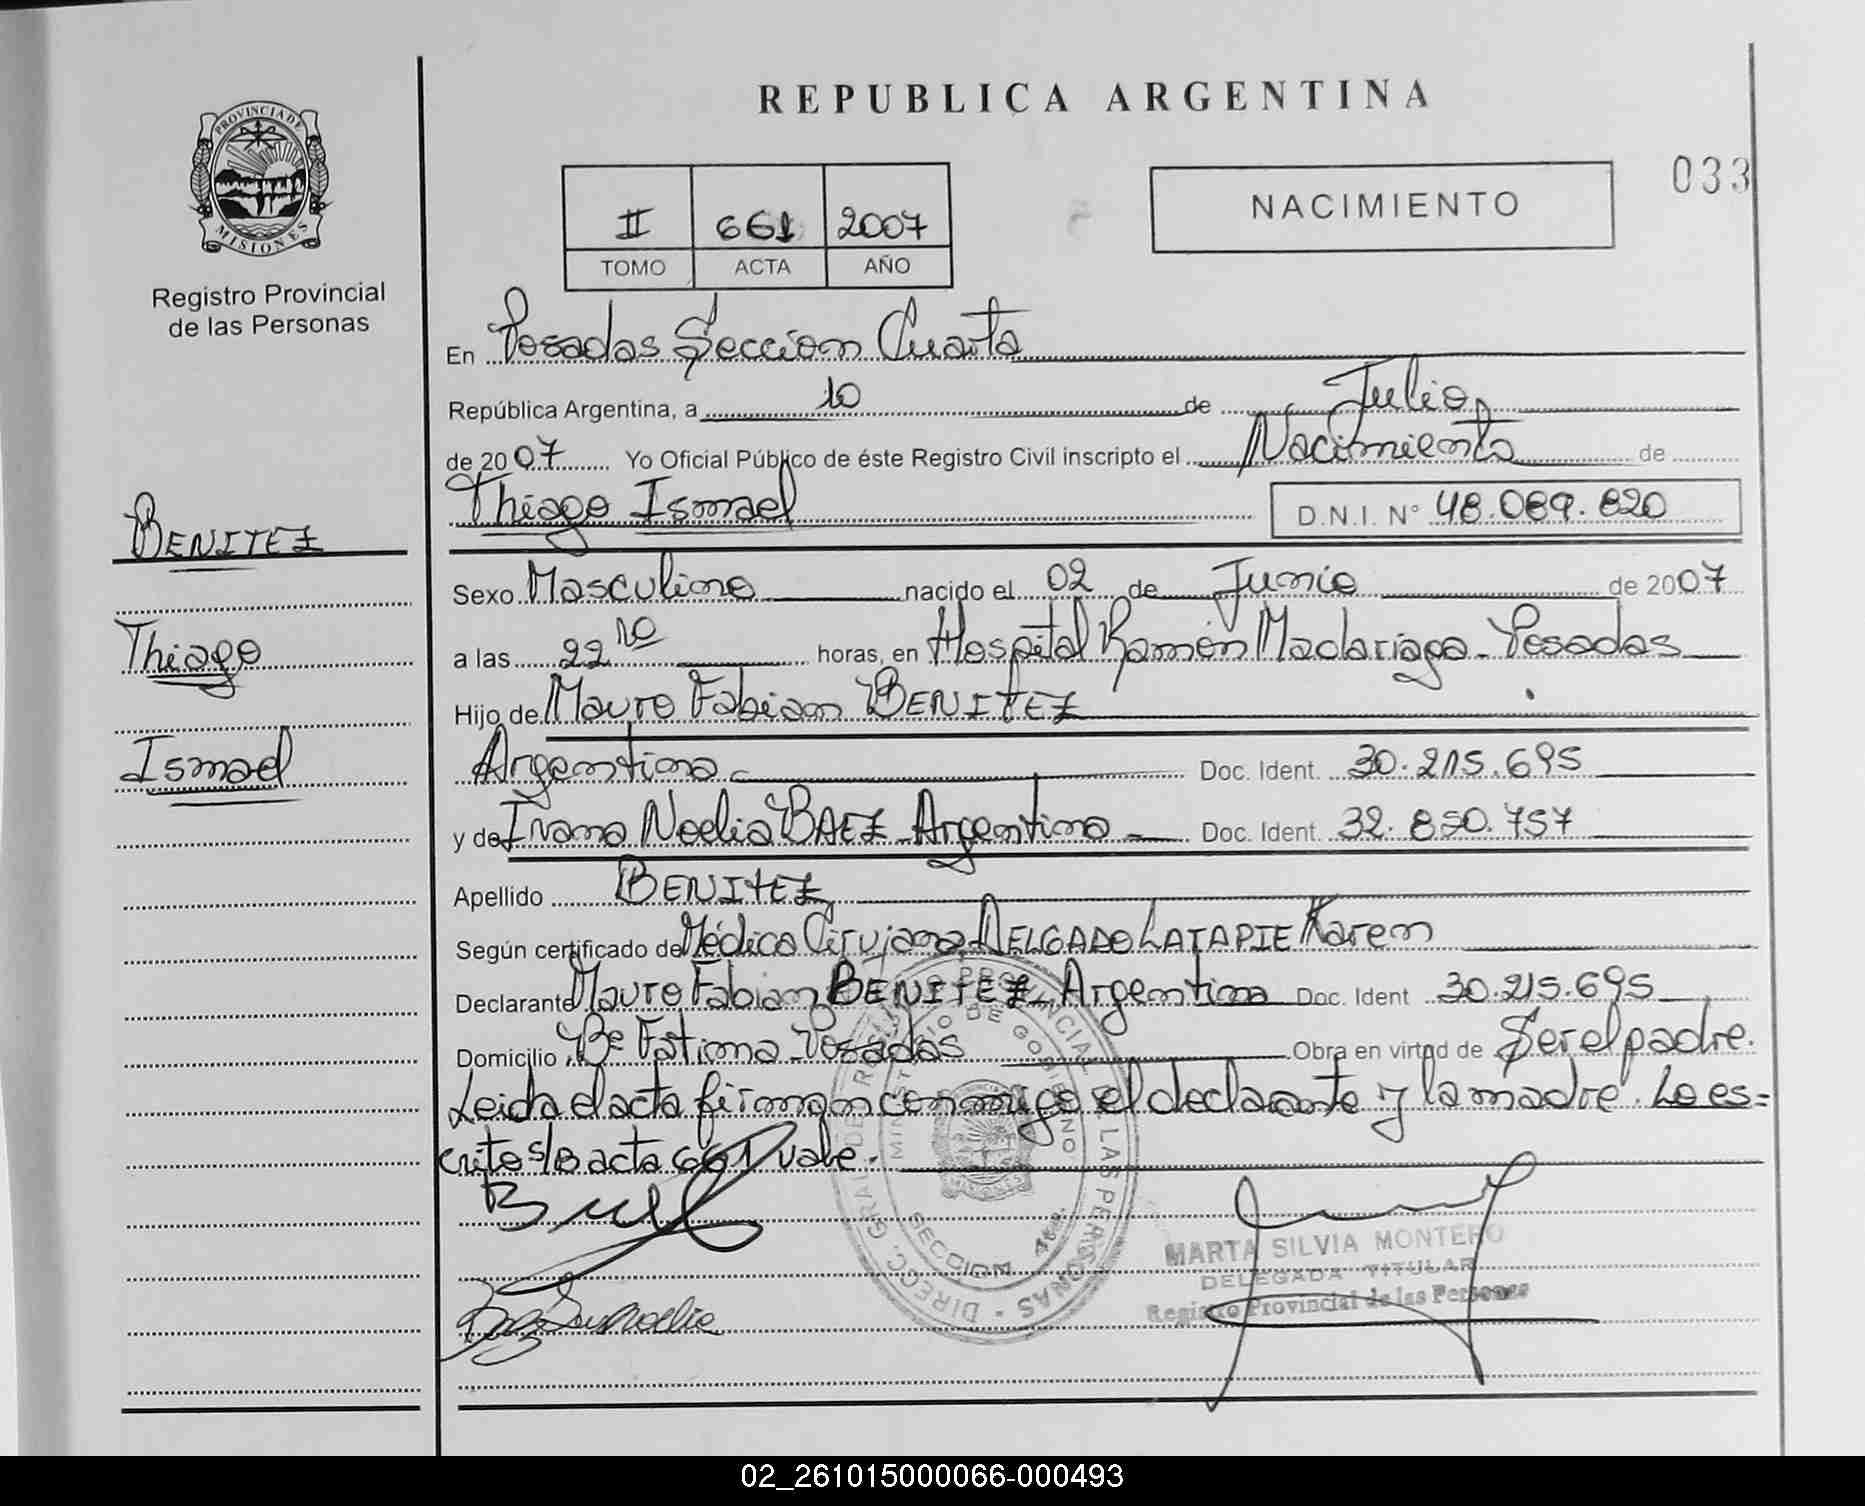 REPUBLICA ARGENTINA
PROVINCIA DE
MISIONES
Registro Provincial
de las Personas
II 661 2007
TOMO ACTA AÑO
NACIMIENTO
033
En Posadas Sección Cuarta
República Argentina, a 10 de Julio
de 2007 Yo Oficial Público de éste Registro Civil inscripto el Nacimiento de
Thiago Ismael D.N.I. N° 48.089.820
BENITEZ
Thiago
Ismael
Sexo Masculino nacido el 02 de Junio de 2007
a las 22 10 horas, en Hospital Ramón Madariaga - Posadas
Hijo de Mauro Fabian BENITEZ
Argentino Doc. Ident. 30.215.695
y de Ivana Noelia BAEZ - Argentina Doc. Ident. 32.850.757
Apellido BENITEZ
Según certificado de Médica Cirujana DELGADO LATAPIE Karem
Declarante Mauro Fabian BENITEZ - Argentino Doc. Ident 30.215.695
Domicilio Bº Fatima - Posadas Obra en virtud de Ser el padre.
Leida el acta firman conmigo el declarante y la madre. Lo es=
crito s/b acta 661 vale.
DIRECC. GRAL DE REGISTRO PROVINCIAL DE LAS PERSONAS
MINISTERIO DE GOBIERNO
SECCION 4ta.
MISIONES
MARTA SILVIA MONTERO
DELEGADA TITULAR
Registro Provincial de las Personas
02_261015000066-000493